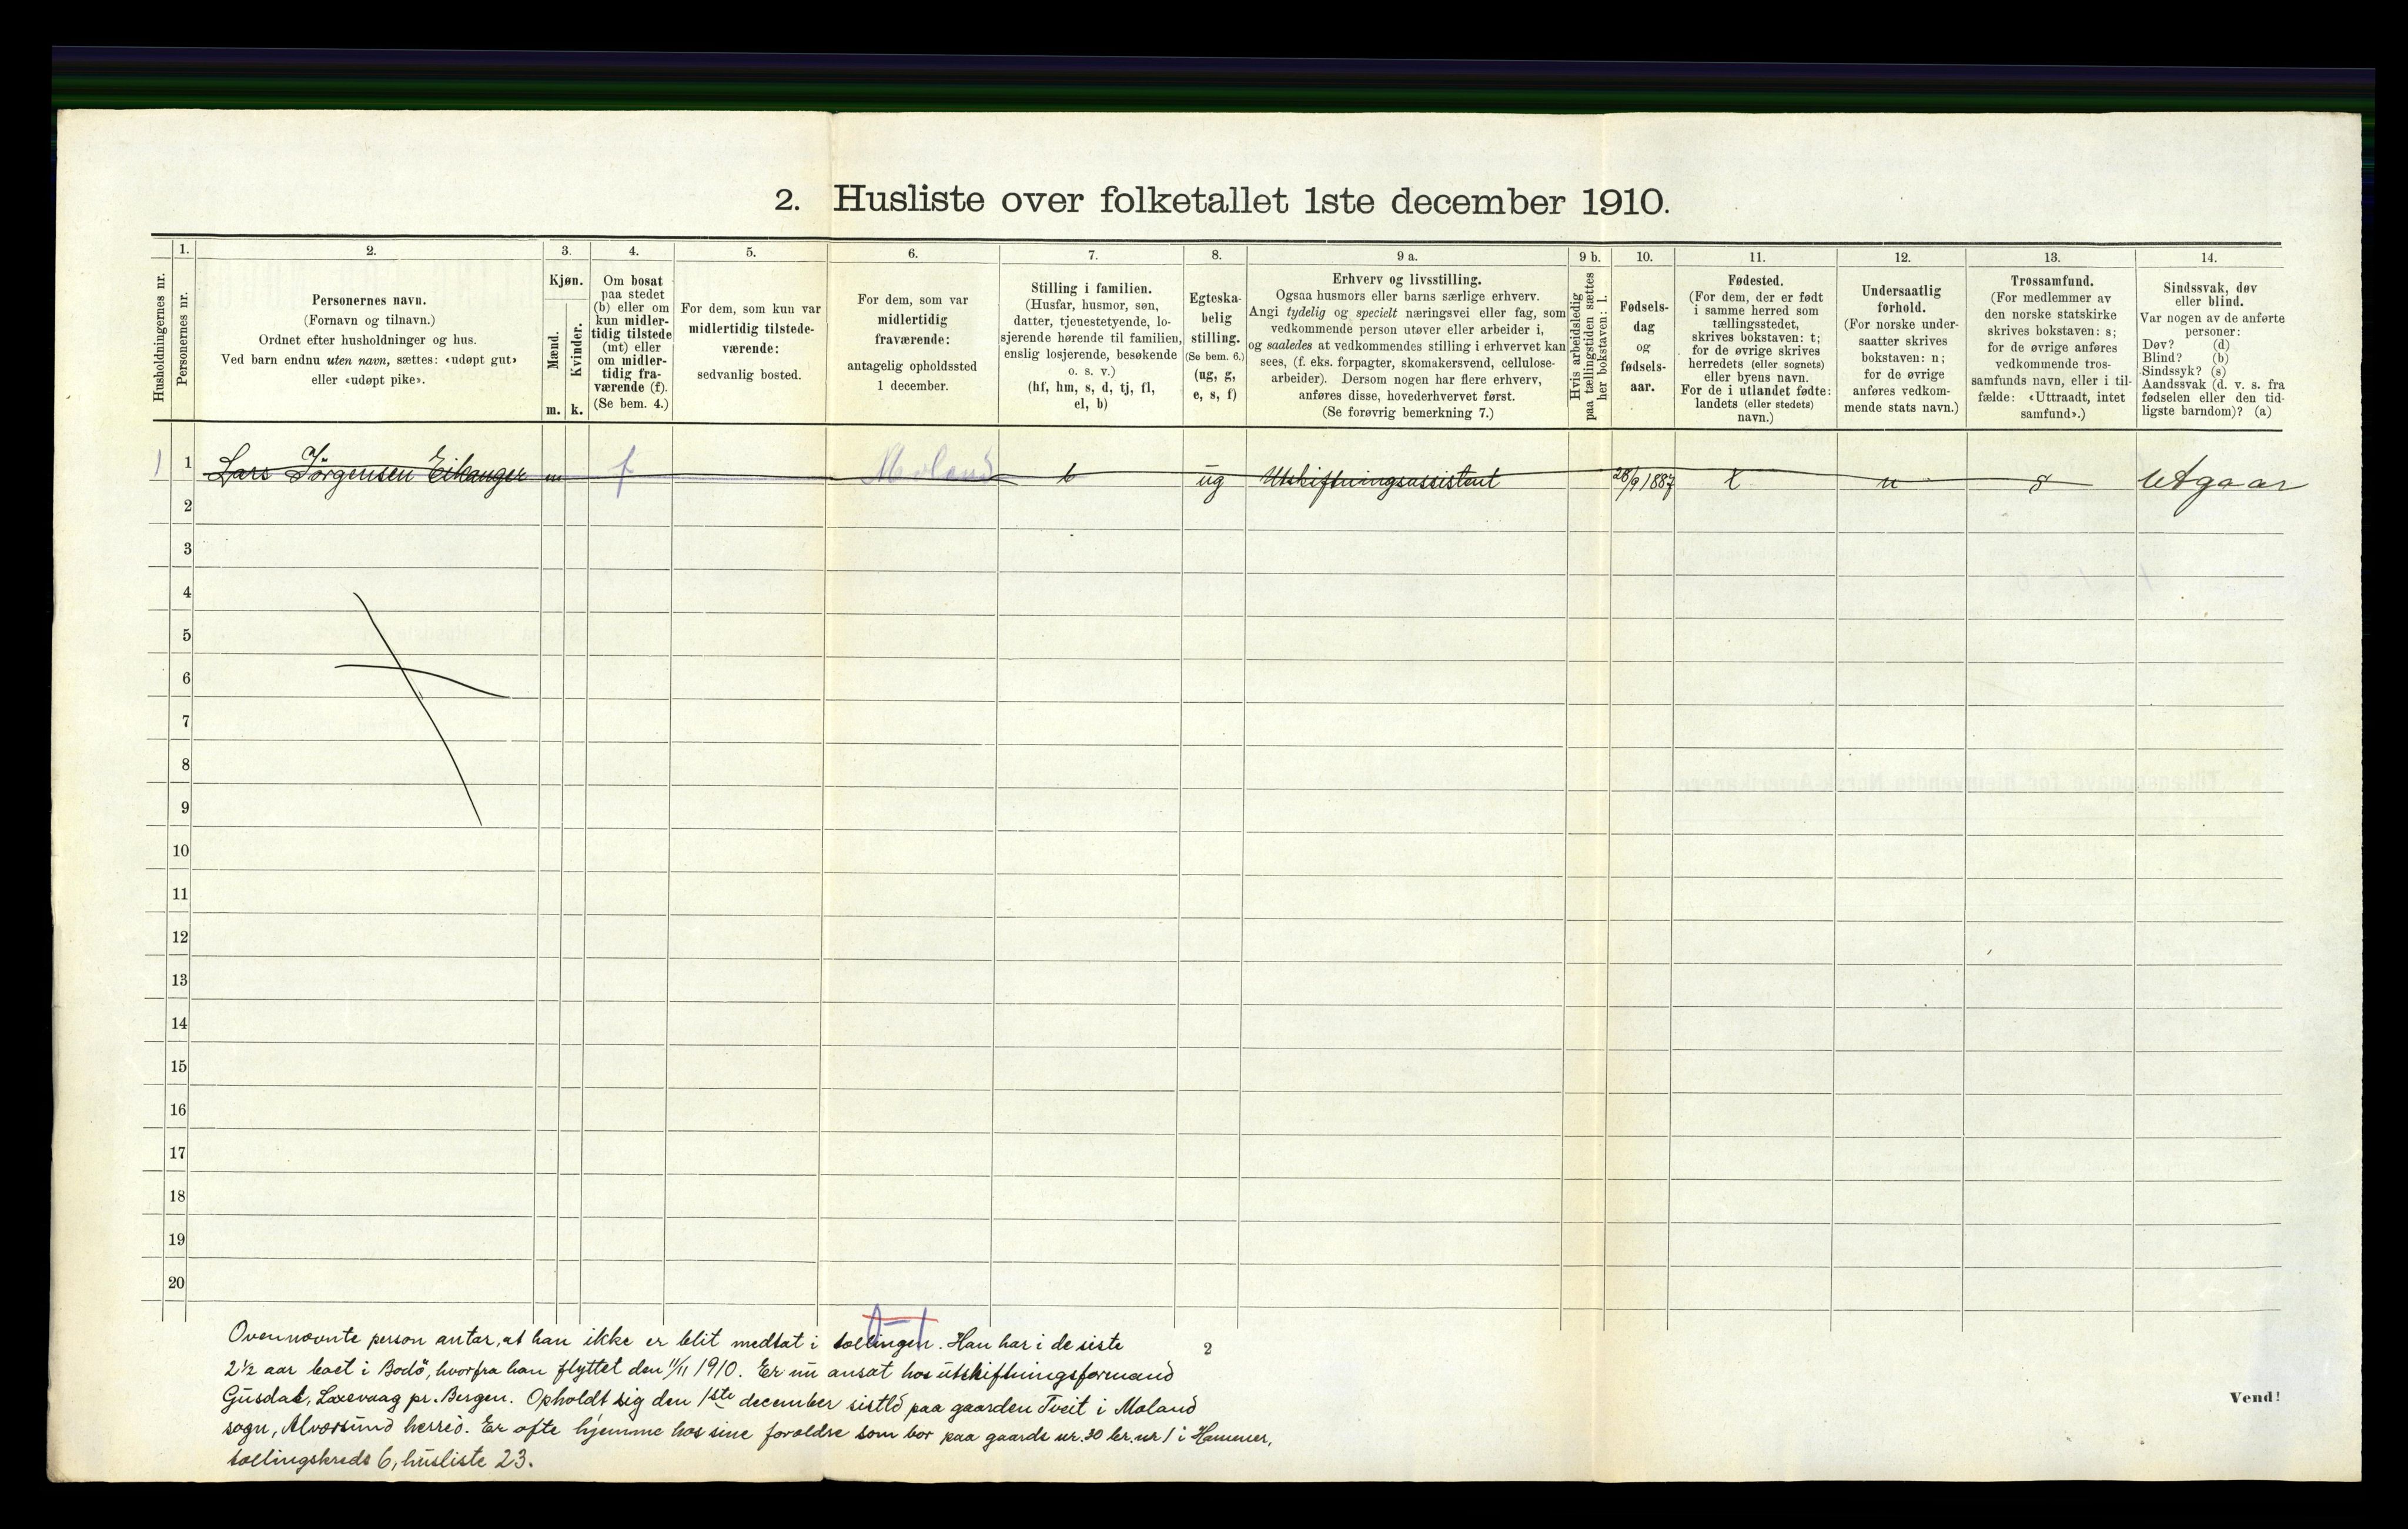 2. Husliste over folketallet 1ste december 1910.
Husholdningernes nr.
1.
Personernes nr.
2.
Personernes navn.
(Fornavn og tilnavn.)
Ordnet efter husholdninger og hus.
Ved barn endnu uten navn, sættes: «udøpt gut»
eller «udøpt pike».
3.
Kjøn.
Mænd.
Kvinder.
m. k.
4.
Om bosat
paa stedet
(b) eller om
kun midler-
tidig tilstede
(mt) eller
om midler-
tidig fra-
værende (f).
(Se bem. 4.)
5.
For dem, som kun var
midlertidig tilstede-
værende:
sedvanlig bosted.
6.
For dem, som var
midlertidig
fraværende:
antagelig opholdssted
1 december.
7.
Stilling i familien.
(Husfar, husmor, søn,
datter, tjenestetyende, lo-
sjerende hørende til familien,
enslig losjerende, besøkende
o. s. v.)
(hf, hm, s, d, tj, fl,
el, b)
8.
Egteska-
belig
stilling.
(Se bem. 6.)
(ug, g,
e, s, f)
9 a.
Erhverv og livsstilling.
Ogsaa husmors eller barns særlige erhverv.
Angi tydelig og specielt næringsvei eller fag, som
vedkommende person utøver eller arbeider i,
og saaledes at vedkommendes stilling i erhvervet kan
sees, (f. eks. forpagter, skomakersvend, cellulose-
arbeider). Dersom nogen har flere erhverv,
anføres disse, hovederhvervet først.
(Se forøvrig bemerkning 7.)
9 b.
Hvis arbeidsledig
paa tællingstiden sættes
her bokstaven: l.
10.
Fødsels-
dag
og
fødsels-
aar.
11.
Fødested.
(For dem, der er født
i samme herred som
tællingsstedet,
skrives bokstaven: t;
for de øvrige skrives
herredets (eller sognets)
eller byens navn.
For de i utlandet fødte:
landets (eller stedets)
navn.)
12.
Undersaatlig
forhold.
(For norske under-
saatter skrives
bokstaven: n;
for de øvrige
anføres vedkom-
mende stats navn.)
13.
Trossamfund.
(For medlemmer av
den norske statskirke
skrives bokstaven: s;
for de øvrige anføres
vedkommende tros-
samfunds navn, eller i til-
fælde: «Uttraadt, intet
samfund».)
14.
Sindssvak, døv
eller blind.
Var nogen av de anførte
personer:
Døv? (d)
Blind? (b)
Sindssyk? (s)
Aandssvak (d. v. s. fra
fødselen eller den tid-
ligste barndom)? (a)
1 1 Lars Jörgensen Eikanger m f Moland b ug Utskiftningsassistent 28/9 1887 t n s Utgaar
2
3
4
5
6
7
8
9
10
11
12
13
14
15
16
17
18
19
20
Ovennævnte person antar, at han ikke er blit medtat i tællingen. Han har i de siste
2½ aar boet i Bodö, hvorfra han flyttet den 11/11 1910. Er nu ansat hos utskiftningsformand
Gusdal, Laxevaag pr. Bergen. Opholdt sig den 1ste december sistld paa gaarden Tveit i Moland
sogn, Alversund herred. Er ofte hjemme hos sine forældre som bor paa gaards nr. 30 br. nr 1 i Hammer,
tællingskreds 6, husliste 23.
2
Vend!